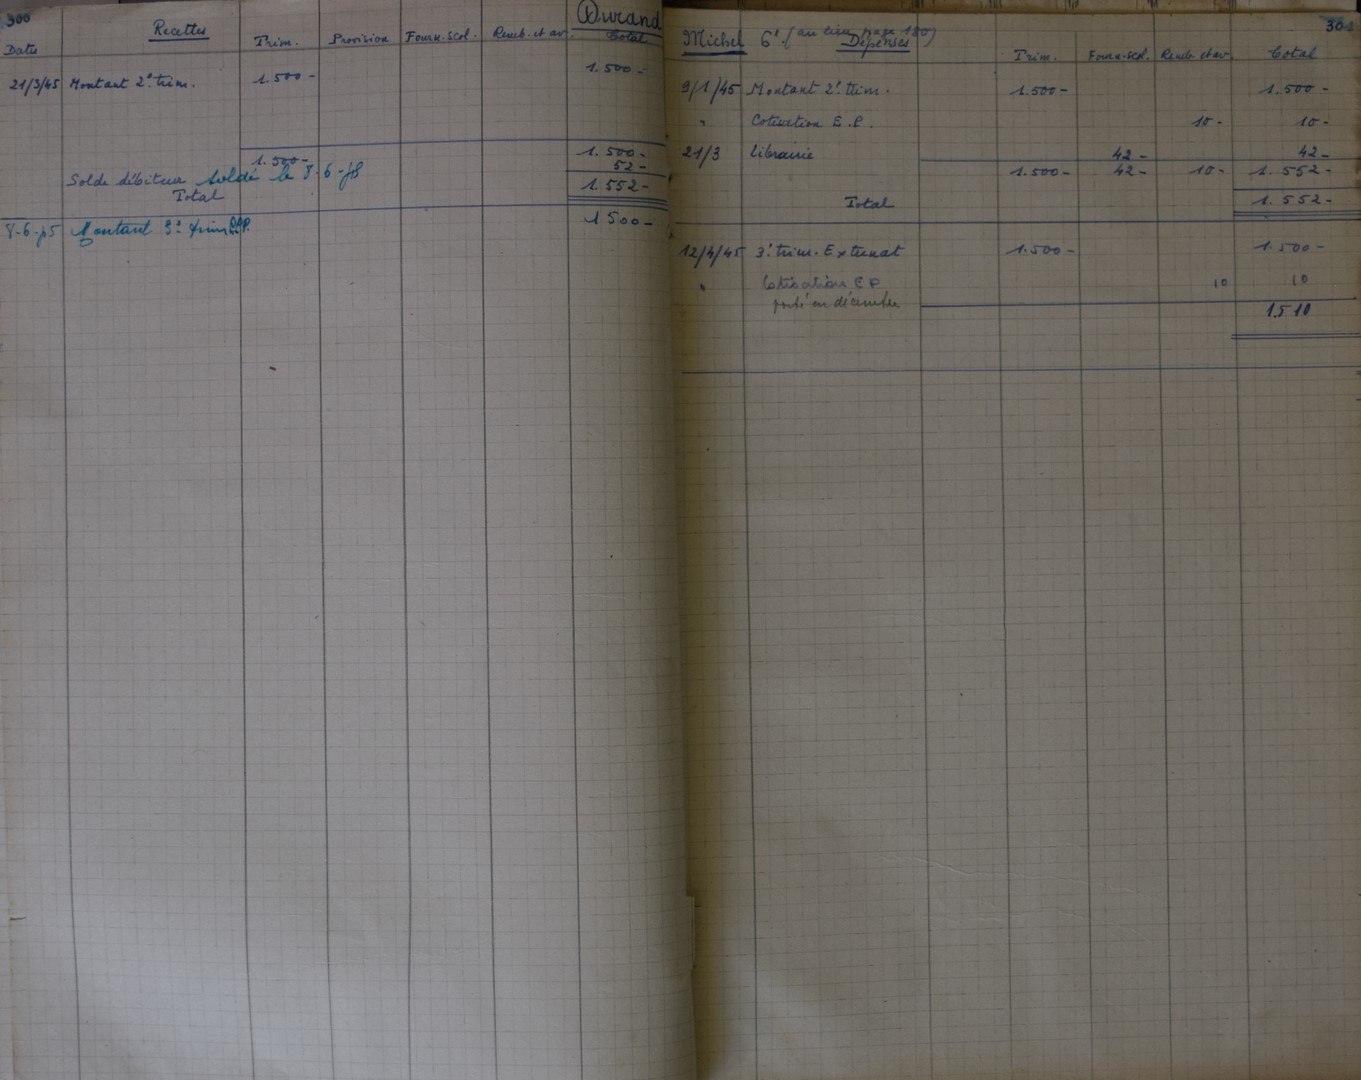 300
Recettes
Durand
Dates Trim. Provision Fourn-scol. Remb. et av. Total
21/3/45 Montant 2e trim. 1.500- 1.500-
1.500- 1.500-
Solde débiteur soldé le 8-6-45 52-
Total 1.552-
8-6-45 Montant 3e trim 1500-
301
Michel 6e (au lieu page 180)
Dépenses
Trim. Fourn-scol. Remb. et av. Total
9/1/45 Montant 2e trim. 1.500- 1.500-
" Cotisation E.P. 10- 10-
21/3 Librairie 42- 42-
1.500- 42- 10- 1.552-
Total 1.552-
12/4/45 3e trim. Externat 1.500- 1.500-
" Cotisation E.P. 10 10
porté en décembre
1510